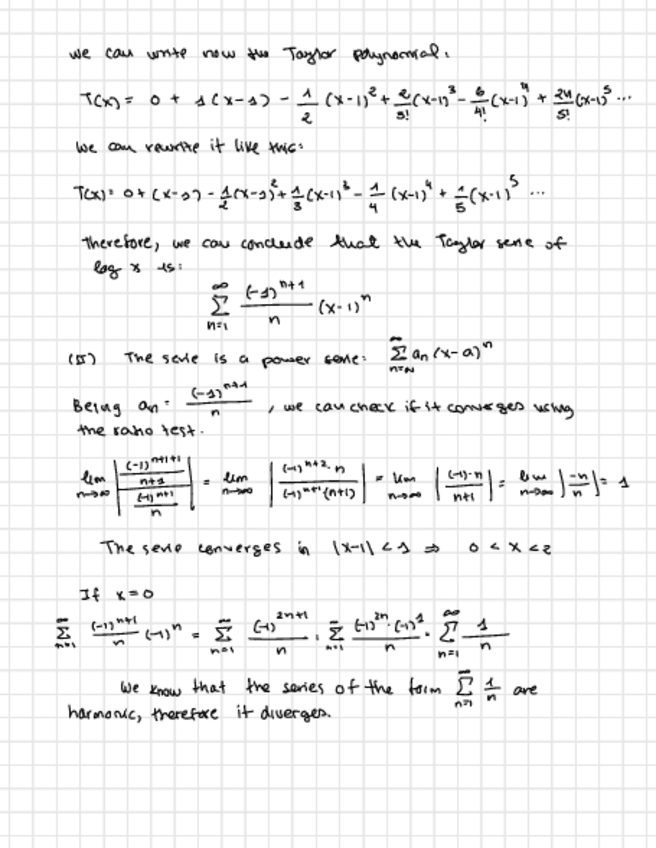 we can write now the Taylor polynomial:
T(x) = 0 + 1(x-1) - 1/2 (x-1)^2 + 2/3! (x-1)^3 - 6/4! (x-1)^4 + 24/5! (x-1)^5 ...
we can rewrite it like this:
T(x) = 0 + (x-1) - 1/2 (x-1)^2 + 1/3 (x-1)^3 - 1/4 (x-1)^4 + 1/5 (x-1)^5 ...
therefore, we can conclude that the Taylor serie of
log x is:
∑_{n=1}^{∞} (-1)^{n+1}/n (x-1)^n
(II) The serie is a power serie: ∑ a_n (x-a)^n
Being a_n = (-1)^{n+1}/n , we can check if it converges using
the ratio test.
lim_{n→∞} | ((-1)^{n+1+1}/(n+1)) / ((-1)^{n+1}/n) | = lim_{n→∞} | ((-1)^{n+2} · n)/((-1)^{n+1} (n+1)) | = lim_{n→∞} | ((-1)·n)/(n+1) | = lim_{n→∞} | -n/n | = 1
The serie converges in |x-1| < 1 ⇒ 0 < x < 2
If x = 0
∑_{n=1}^{∞} (-1)^{n+1}/n (-1)^n = ∑_{n=1}^{∞} (-1)^{2n+1}/n = ∑_{n=1}^{∞} ((-1)^{2n} · (-1)^1)/n = ∑_{n=1}^{∞} 1/n
We know that the series of the form ∑_{n=1}^{∞} 1/n are
harmonic, therefore it diverges.